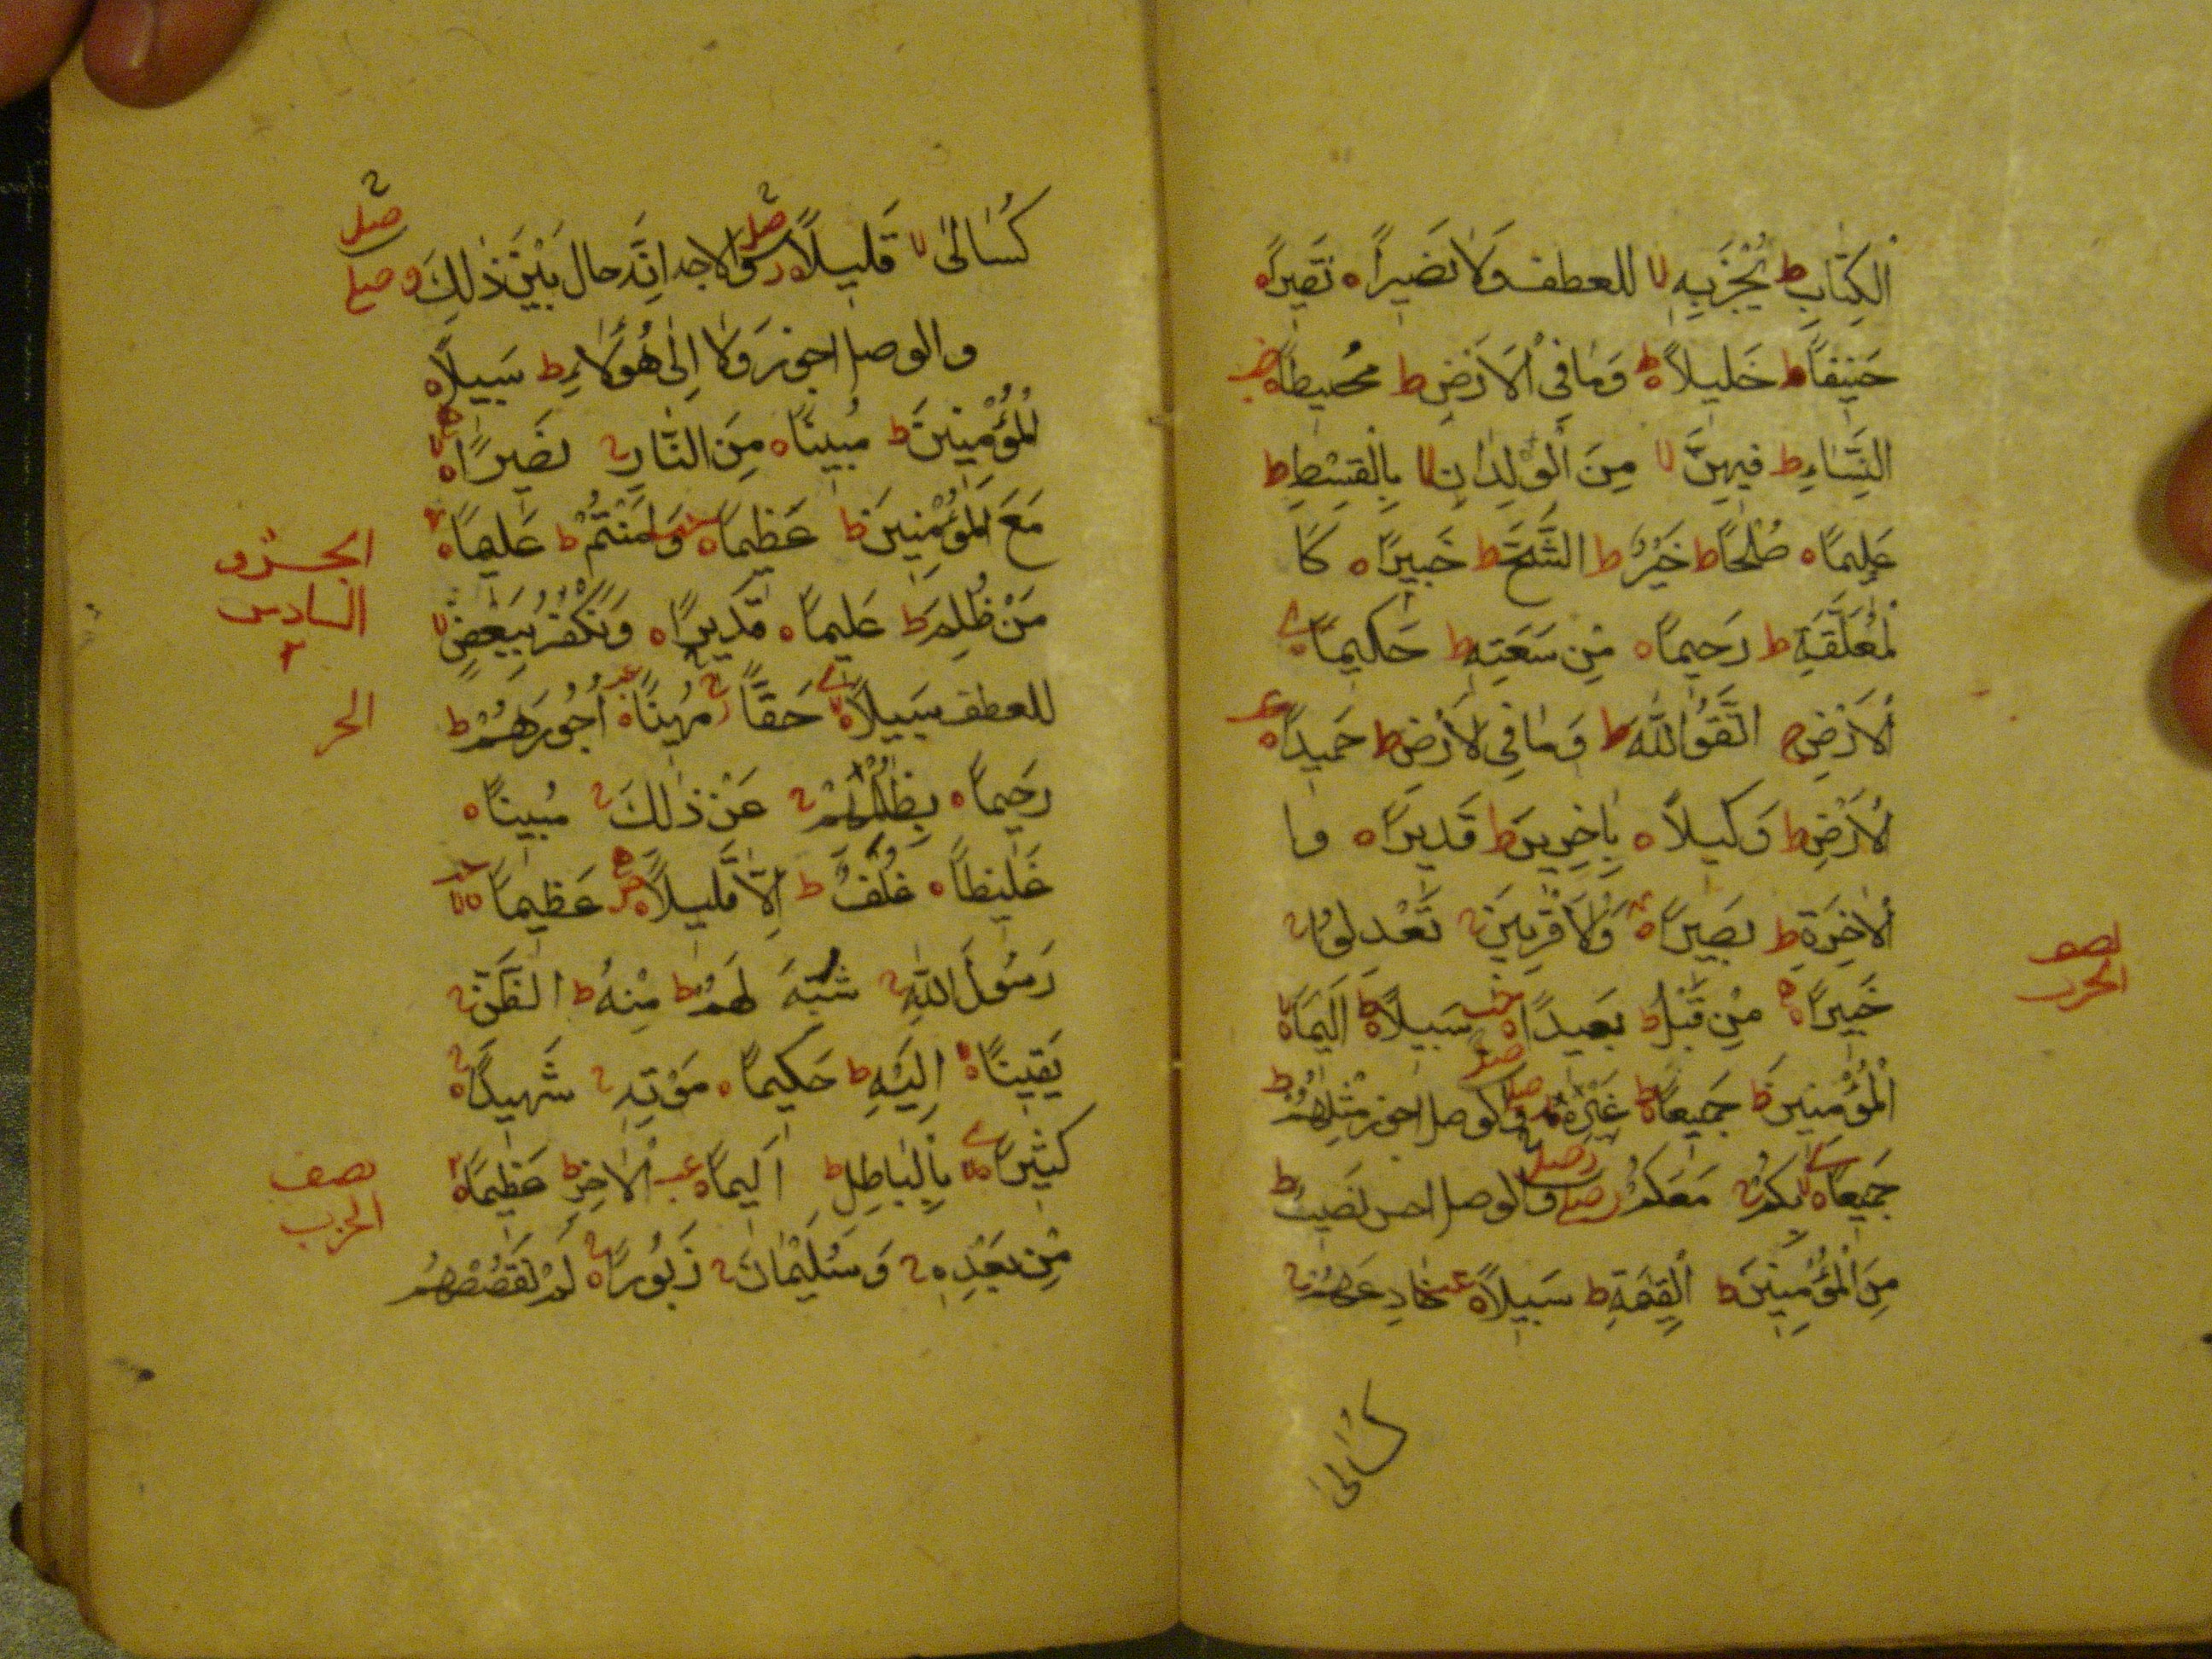 الْكِتَابِ ط يُجْزَ بِهِ لا للعطف وَلَا نَصِيرًا ه نَقِيرًا ه
حَنِيفًا ط خَلِيلًا ه ط وَمَا فِي الْأَرْضِ ط مُحِيطًا ه
النِّسَاءِ ط فِيهِنَّ لا مِنَ الْوِلْدَانِ لا بِالْقِسْطِ ط
عَلِيمًا ه صُلْحًا ط خَيْرٌ ط الشُّحَّ ط خَبِيرًا ه كَا
لْمُعَلَّقَةِ ط رَحِيمًا ه مِنْ سَعَتِهِ ط حَكِيمًا ه
الْأَرْضِ اتَّقُوا اللَّهَ ط وَمَا فِي الْأَرْضِ ط حَمِيدًا ه
الْأَرْضِ ط وَكِيلًا ه بِآخَرِينَ ط قَدِيرًا ه وا
لْآخِرَةِ ط بَصِيرًا ه وَالْأَقْرَبِينَ تَعْدِلُوا
خَبِيرًا ه مِنْ قَبْلُ ط بَعِيدًا ه سَبِيلًا ه ط أَلِيمًا ه لا
الْمُؤْمِنِينَ ط جَمِيعًا ه ط غَيْرِهِ والوصل اجوز مِثْلُهُمْ ط
جَمِيعًا ه لا بِكُمْ مَعَكُمْ والوصل احسن نَصِيبٌ ط
مِنَ الْمُؤْمِنِينَ ط الْقِيٰمَةِ ط سَبِيلًا ه خَادِعُهُمْ
كُسَالَىٰ
نصف
الحزب
كُسَالَىٰ لا قَلِيلًا ه لاجد انه حال بَيْنَ ذٰلِكَ
والوصل اجوز وَلَا إِلَىٰ هٰؤُلَاءِ ط سَبِيلًا ه
الْمُؤْمِنِينَ ط مُبِينًا ه مِنَ النَّارِ نَصِيرًا ه لا
مَعَ الْمُؤْمِنِينَ ط عَظِيمًا ه وَآمَنْتُمْ ط عَلِيمًا ه
مَنْ ظُلِمَ ط عَلِيمًا ه قَدِيرًا ه وَنَكْفُرُ بِبَعْضٍ لا
للعطف سَبِيلًا ه لا حَقًّا مُهِينًا ه أُجُورَهُمْ ط
رَحِيمًا ه بِظُلْمِهِمْ عَنْ ذٰلِكَ مُبِينًا ه
غَلِيظًا ه غُلْفٌ ط إِلَّا قَلِيلًا ه عَظِيمًا ه لا
رَسُولَ اللَّهِ شُبِّهَ لَهُمْ ط مِنْهُ ط الظَّنِّ
يَقِينًا ه إِلَيْهِ ط حَكِيمًا ه مَوْتِهِ شَهِيدًا ه
كَثِيرًا ه لا بِالْبَاطِلِ ط أَلِيمًا ه الْآخِرِ ط عَظِيمًا ه
مِنْ بَعْدِهِ وَسُلَيْمَانَ زَبُورًا ه لَمْ نَقْصُصْهُمْ
الجزؤ
السادس
نصف
الحزب